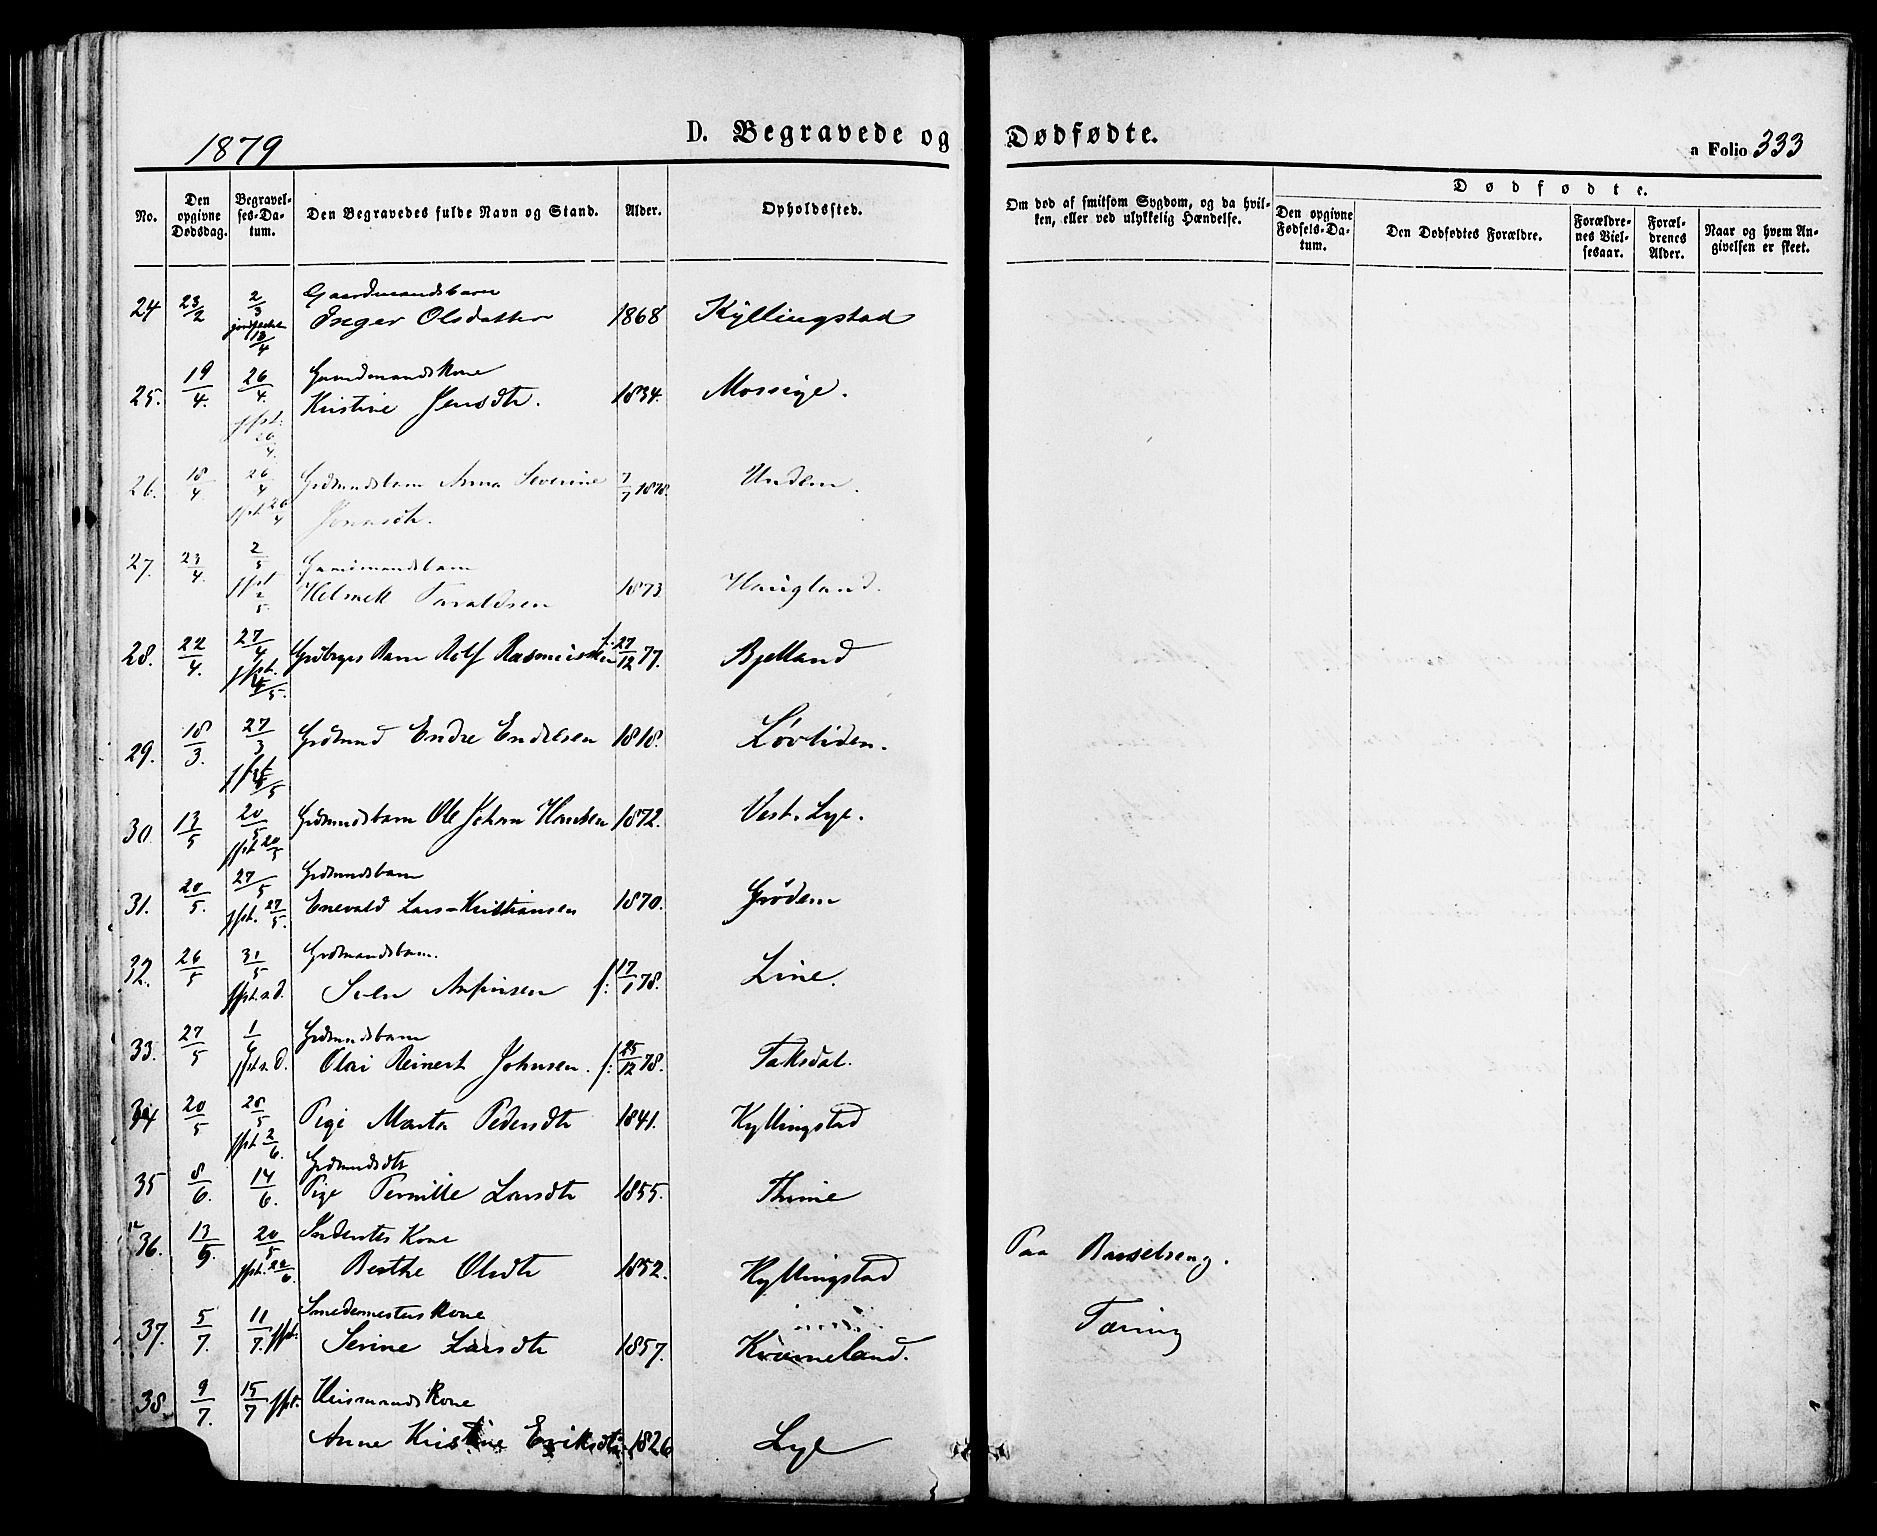 1879
D. Begravede og Dødfødte.
a Folio 333
No.
Den opgivne Dødsdag.
Begravelses-Datum.
Den Begravedes fulde Navn og Stand.
Alder.
Opholdssted.
Om død af smitsom Sygdom, og da hvilken, eller ved ulykkelig Hændelse.
Dødfødte.
Den opgivne Fødsels-Datum.
Den Dødfødtes Forældre.
Forældrenes Vielsesaar.
Forældrenes Alder.
Naar og hvem Angivelsen er skeet.
24 23/2 2/3 Gaardmandsbarn
Inger Olsdatter 1868 Kyllingstad
25. 19/4. 26/4. Gaardmandskone
Kristine Jensdtr. 1834. Mossige.
26. 18/4 26/4 Grdmndsbarn Anna Severine 7/7 1878. Undem.
jfpt. 26/4 Jonasdtr.
27. 23/4. 2/5 Gaardmandsbarn
jfpt 2/5. Helmek Taraldsen 1873 Haugland.
28. 22/4. 27/4 Rolf Rasmussen f: 27/12 77. Bjelland
29. 18/3. 27/3 Grdmnd Endre Endresen 1818. Løvliden.
30. 13/5 20/5 Grdmndsbarn Ole Johan Hansen 1872. Vest. Lye.
jfpt 20/5
31. 20/5. 27/5 Grdmndsbarn
jfpt. 27/5. Enevald Lars-Kristiansen 1870. Grødem
32. 26/5 31/5 Grdmandsbarn.
jfpt. s. d. Sven Anfinsen f: 17/1 78. Line.
33. 27/5 1/6 Grdmndsbarn
jfpt s. d. Olai Reinert Johnsen. f: 25/12 78. Taksdal.
34 20/5 28/5 Pige Marta Pedersdtr 1841. Kyllingstad
jfpt. 2/6.
35 8/6. 14/6. Grdmndsdtr
Pige Pernille Larsdtr 1855. Thime
36. 13/5. 20/5 Kone
jfpt. 22/6. Berthe Olsdtr 1852. Kyllingstad Paa Barselseng.
37. 5/7. 11/7. jfpt: Smedemesters Kone
Serine Larsdtr 1857. Kverneland. Tæring
38 9/7. 15/7 jfpt. Huusmands Kone
Anne Kristine Eriksdtr. 1826 Lye